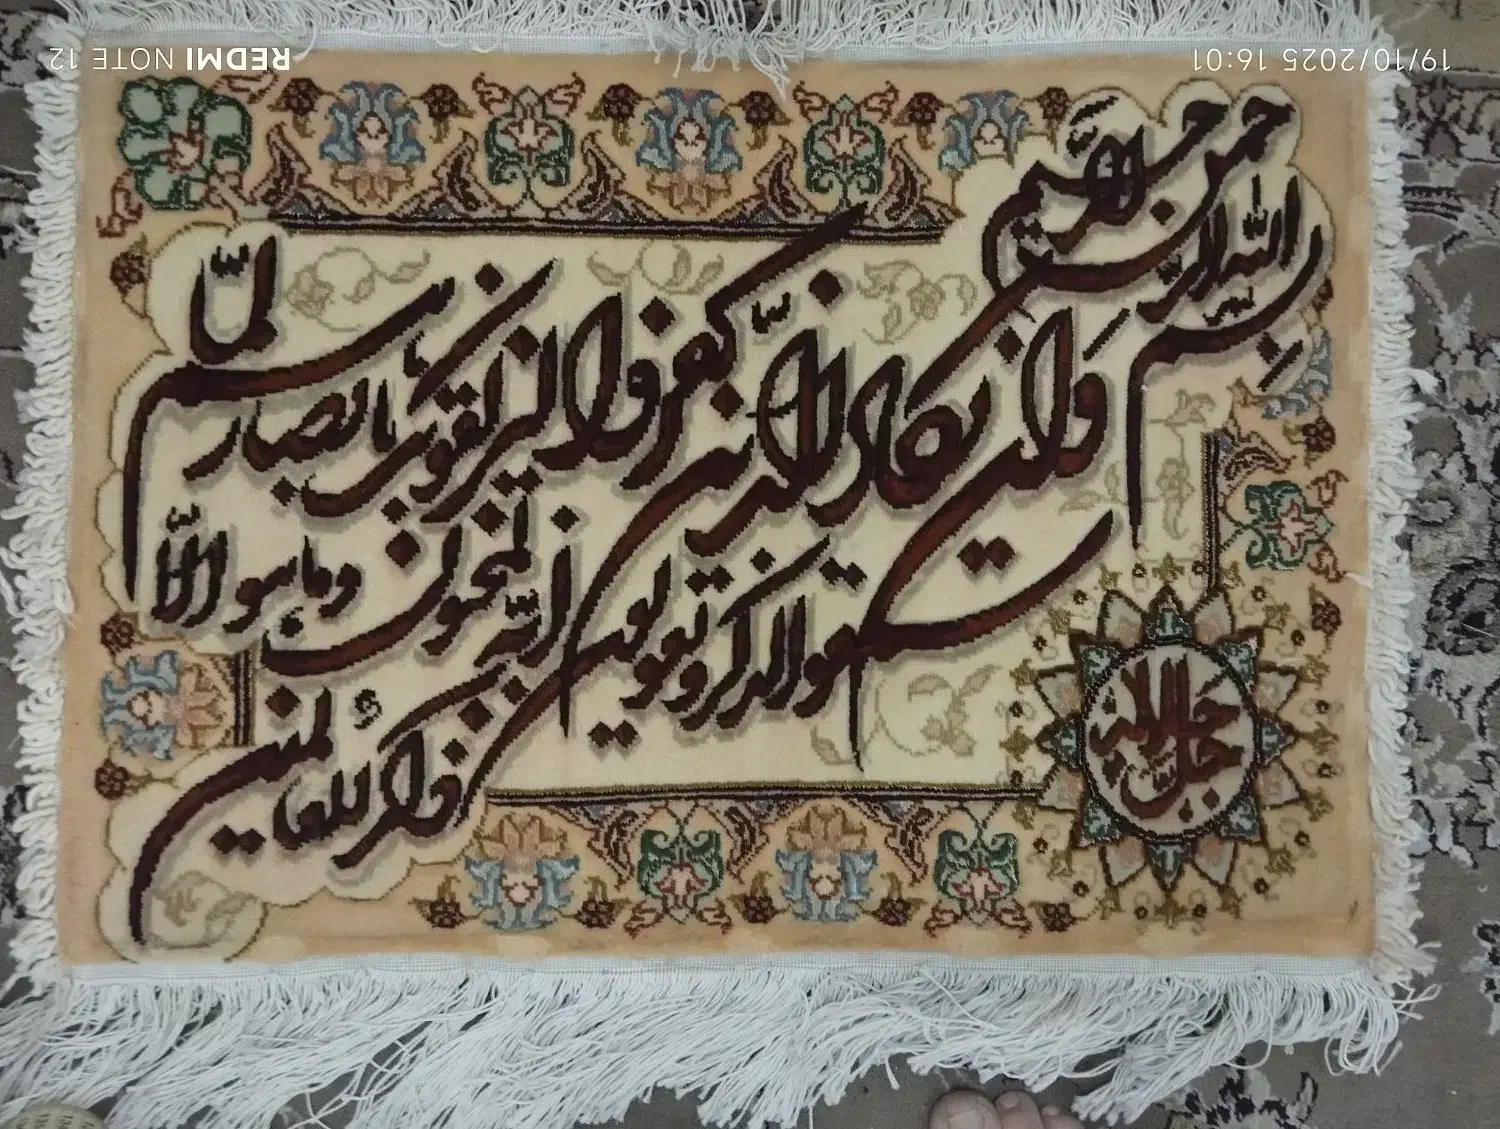 بسم الله الرحمن الرحیم
وان یکاد الذین کفروا لیزلقونک بابصارهم لما
سمعوا الذکر و یقولون انه لمجنون وما هو الا
ذکر للعالمین
جل جلاله
REDMI NOTE 12
19/10/2025 16:01